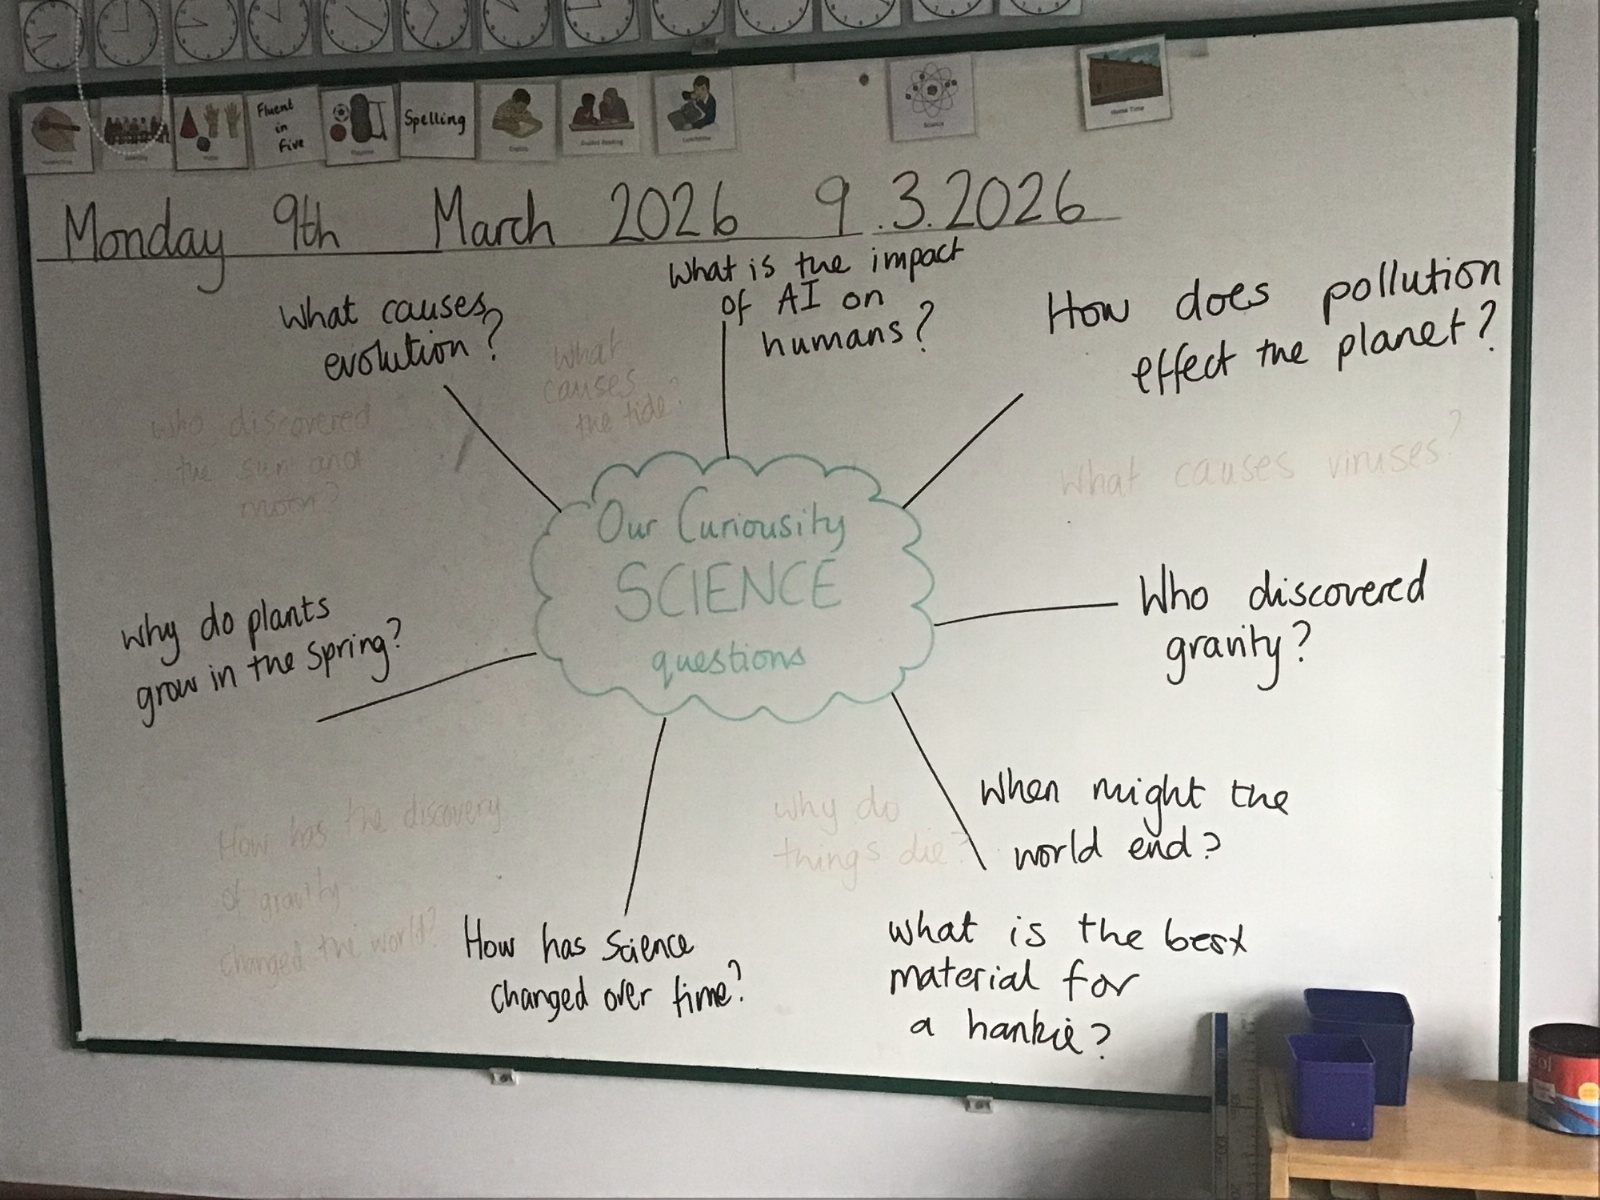 Fluent
in
Five
Spelling
Science
Home Time
Monday 9th March 2026 9.3.2026
What causes
evolution?
What is the impact
of AI on
humans?
How does pollution
effect the planet?
What
causes
the tide?
Who discovered
the sun and
moon?
What causes viruses?
Our Curiousity
SCIENCE
questions
Why do plants
grow in the spring?
Who discovered
gravity?
When might the
world end?
Why do
things die?
How has the discovery
of gravity
changed the world?
How has Science
changed over time?
What is the best
material for
a hankie?